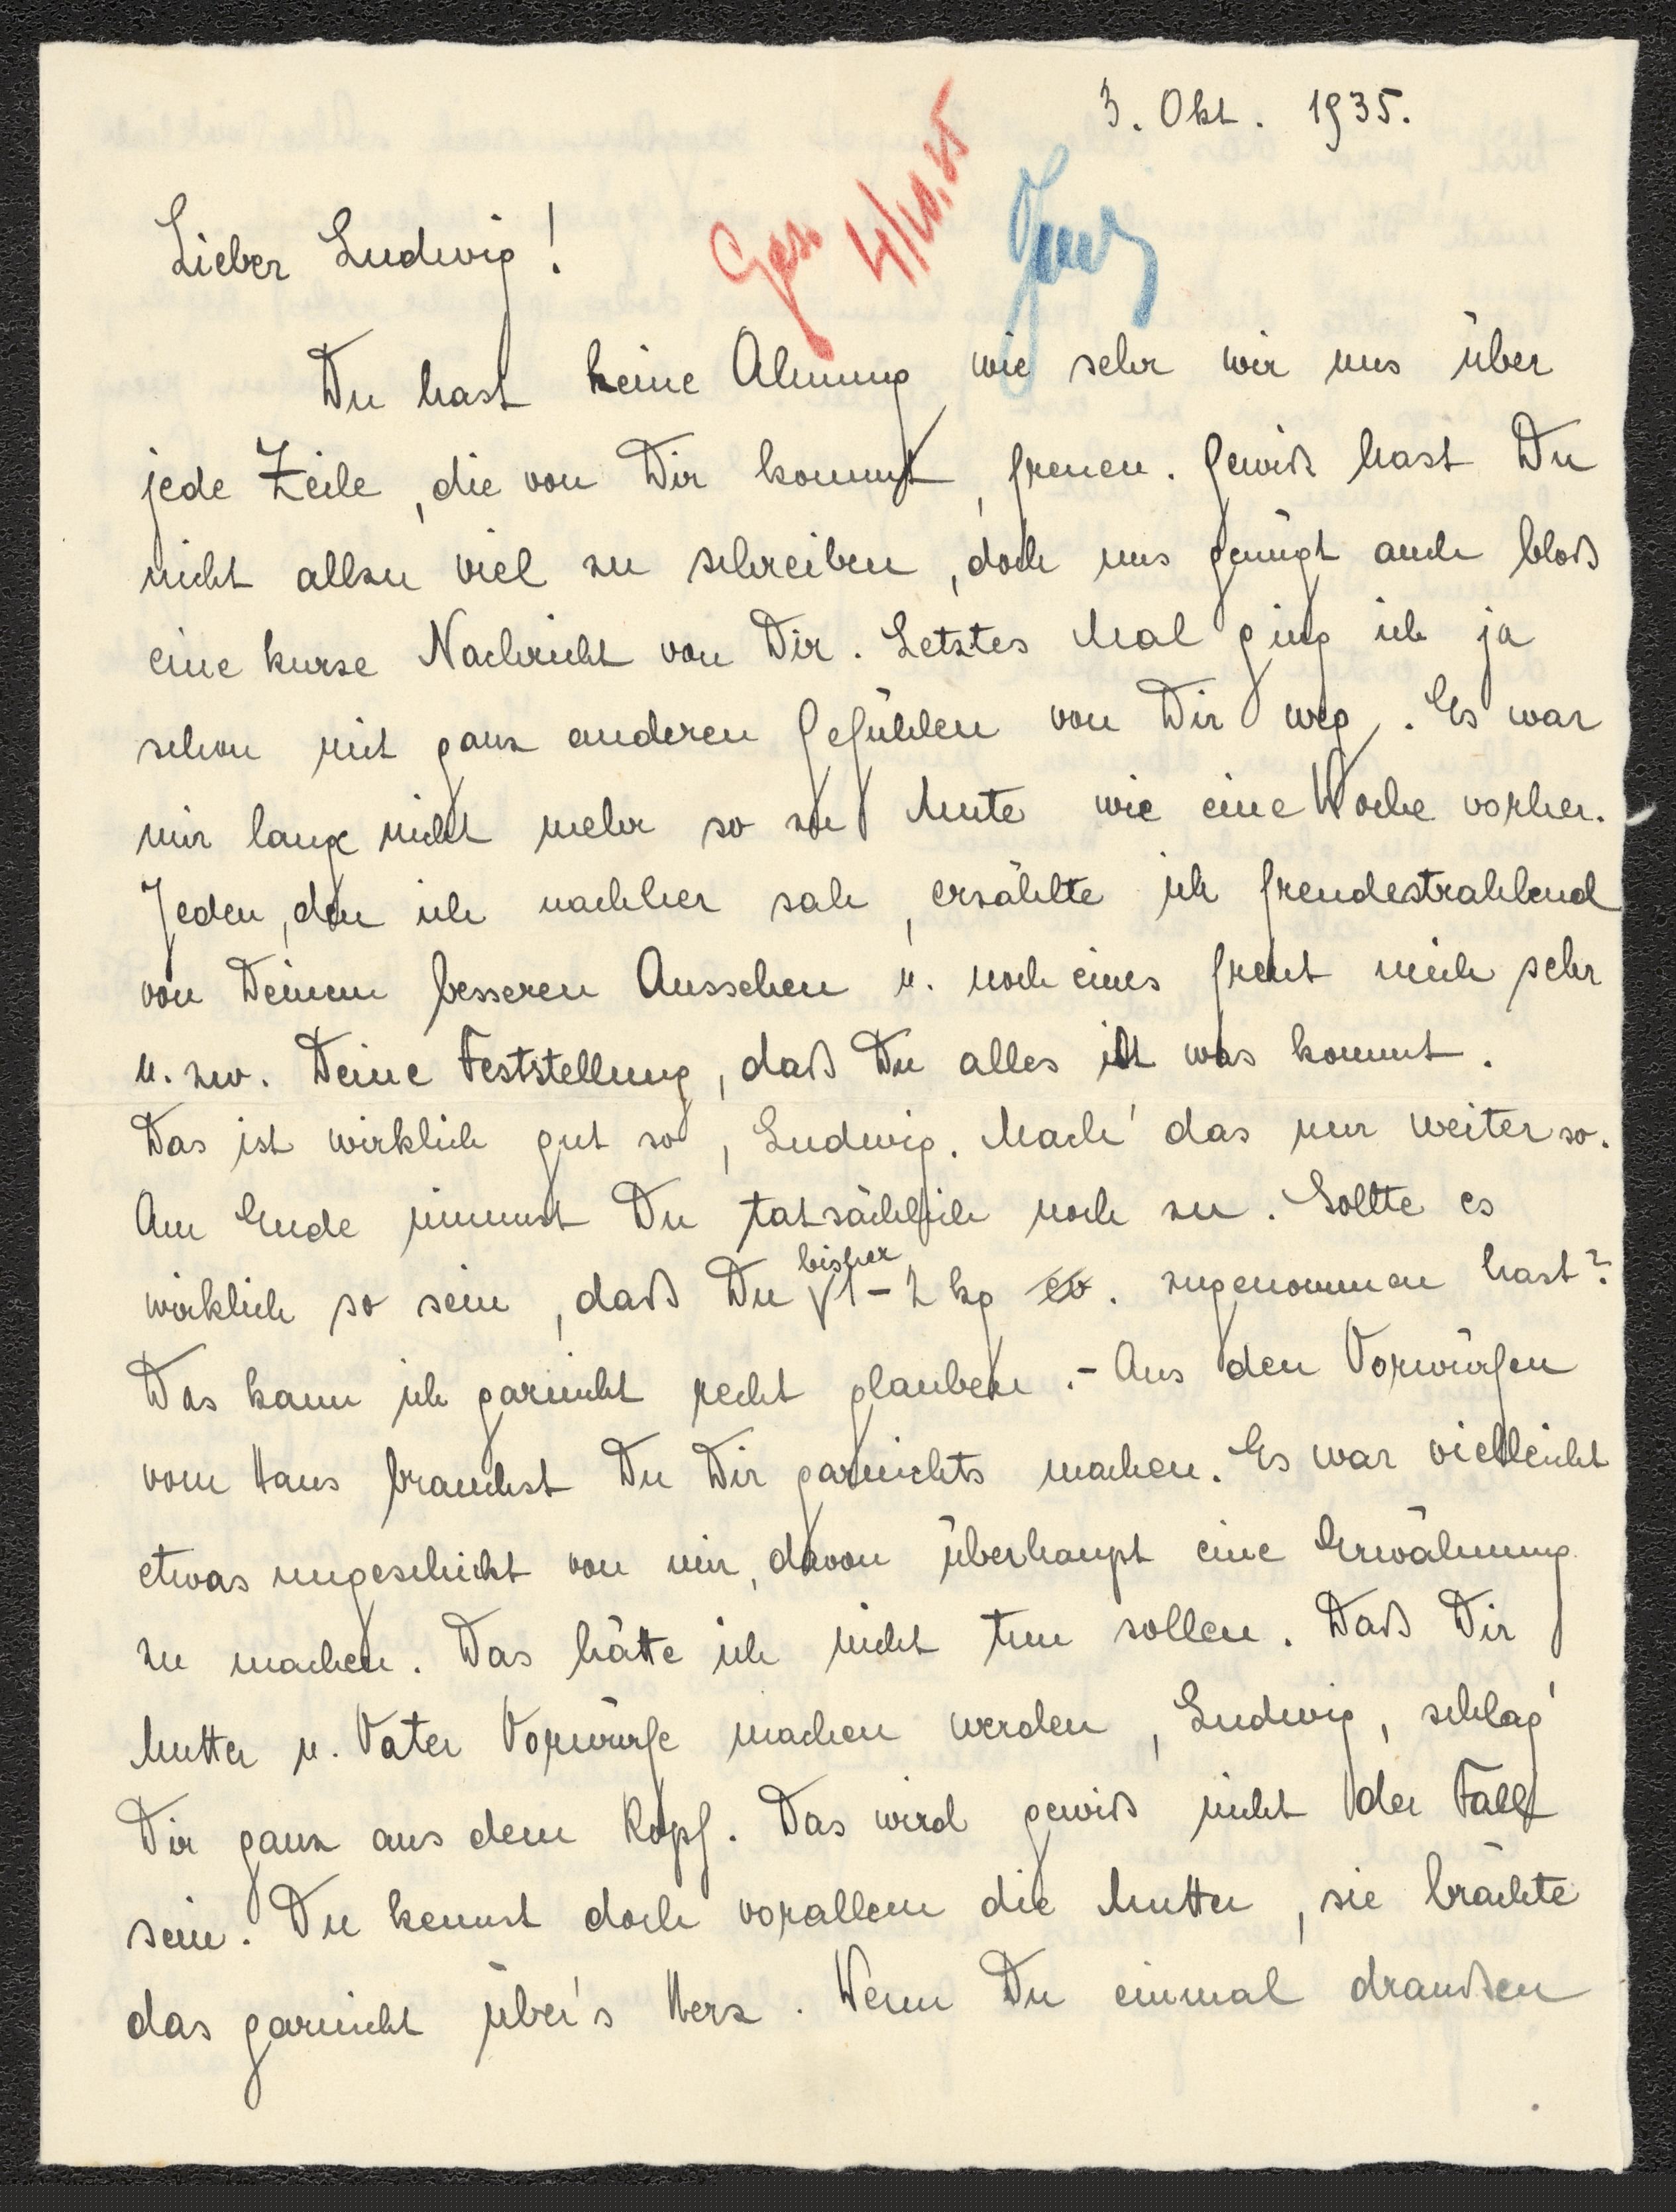 3. Okt. 1935.
Ges. 4/10.35
Lieber Ludwig!
Du hast keine Ahnung wie sehr wir uns über
jede Zeile, die von Dir kommt, freuen. Gewiß hast Du
nicht allzu viel zu schreiben, doch uns genügt auch bloß
eine kurze Nachricht von Dir. Letztes Mal ging ich ja
schon mit ganz anderen Gefühlen von Dir weg. Es war
mir lange nicht mehr so zu Mute wie eine Woche vorher.
Jeden, den ich nachher sah, erzählte ich freudestrahlend
von Deinem besseren Aussehen u. noch eines freut mich sehr
u. zw. Deine Feststellung, daß Du alles ißt was kommt.
Das ist wirklich gut so, Ludwig. Mach' das nur weiter so.
Am Ende nimmst Du tatsächlich noch zu. Sollte es
wirklich so sein, daß Du bisher 1-2 kg ev. zugenommen hast?
Das kann ich garnicht recht glauben.- Aus den Vorwürfen
vom Hans brauchst Du Dir garnichts machen. Es war vielleicht
etwas ungeschickt von mir, davon überhaupt eine Erwähnung
zu machen. Das hätte ich nicht tun sollen. Daß Dir
Mutter u. Vater Vorwürfe machen werden, Ludwig, schlag'
Dir ganz aus dem Kopf. Das wird gewiß nicht der Fall
sein. Du kennst doch vorallem die Mutter, sie brächte
das garnicht über's Herz. Wenn Du einmal draußen